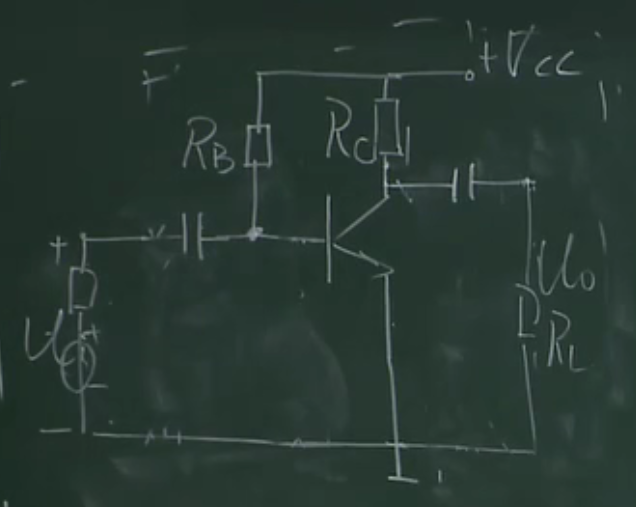 +Vcc
RB
Rc
+
U
+
-
Uo
RL
-